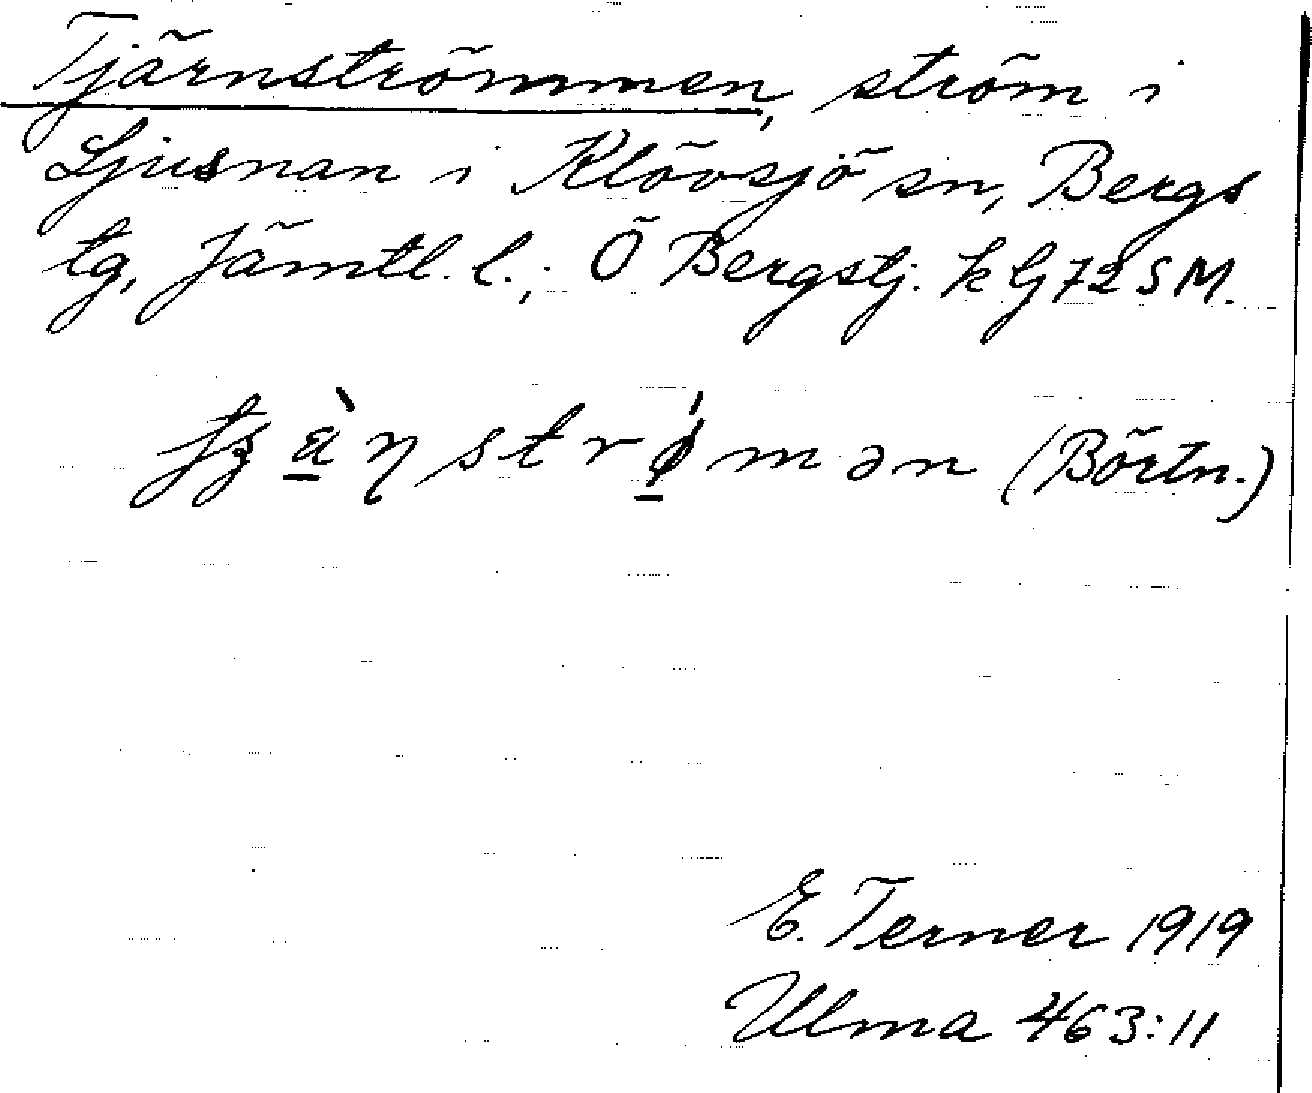 Tjärnströmmen, ström i
Ljusnan i Klövsjö sn, Bergs
tg, Jämtl. l.; Ö Bergstj. k G 72 SM.
(Börtn.)
E. Terner 1919
Ulma 463:11